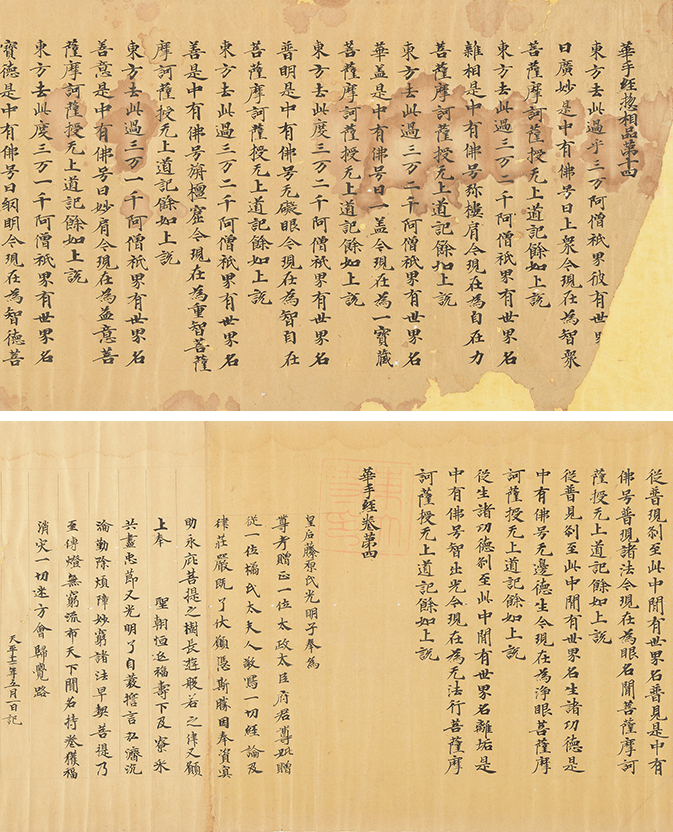 華手經惣相品第十四
東方去此過于三万阿僧祇界彼有世界
曰廣妙是中有佛号曰上衆今現在為智衆
菩薩摩訶薩授无上道記餘如上說
東方去此過三万二千阿僧祇界有世界名
離相是中有佛号弥樓肩今現在為自在力
菩薩摩訶薩授无上道記餘如上說
東方去此過三万二千阿僧祇界有世界名
華盖是中有佛号曰一盖今現在為一寳藏
菩薩摩訶薩授无上道記餘如上說
東方去此度三万二千阿僧祇界有世界名
普明是中有佛号无礙眼今現在為智自在
菩薩摩訶薩授无上道記餘如上說
東方去此過三万二千阿僧祇界有世界名
善是中有佛号旃檀窟今現在為重智菩薩
摩訶薩授无上道記餘如上說
東方去此過三万一千阿僧祇界有世界名
善意是中有佛号曰妙肩今現在為益意菩
薩摩訶薩授无上道記餘如上說
東方去此度三万一千阿僧祇界有世界名
寳德是中有佛号曰網明今現在為智德菩
從普現剎至此中閒有世界名普見是中有
佛号普現諸法今現在為眼名聞菩薩摩訶
薩授无上道記餘如上說
從普見剎至此中閒有世界名生諸功德是
中有佛号无邊德生今現在為淨眼菩薩摩
訶薩授无上道記餘如上說
從生諸功德剎至此中閒有世界名離垢是
中有佛号智止光今現在為无法行菩薩摩
訶薩授无上道記餘如上說
華手經卷第四
皇后藤原氏光明子奉為
尊考贈正一位太政太臣府君尊妣贈
從一位橘氏太夫人敬寫一切經論及
律莊嚴既了伏願憑斯勝因奉資冥
助永庇菩提之樹長遊般若之津又願
上奉 聖朝恒延福壽下及寮采
共盡忠節又光明子自發誓言弘濟沉
淪勤除煩障妙窮諸法早契菩提乃
至傳燈無窮流布天下聞名持卷獲福
消灾一切迷方會歸覺路
天平十二年五月一日記